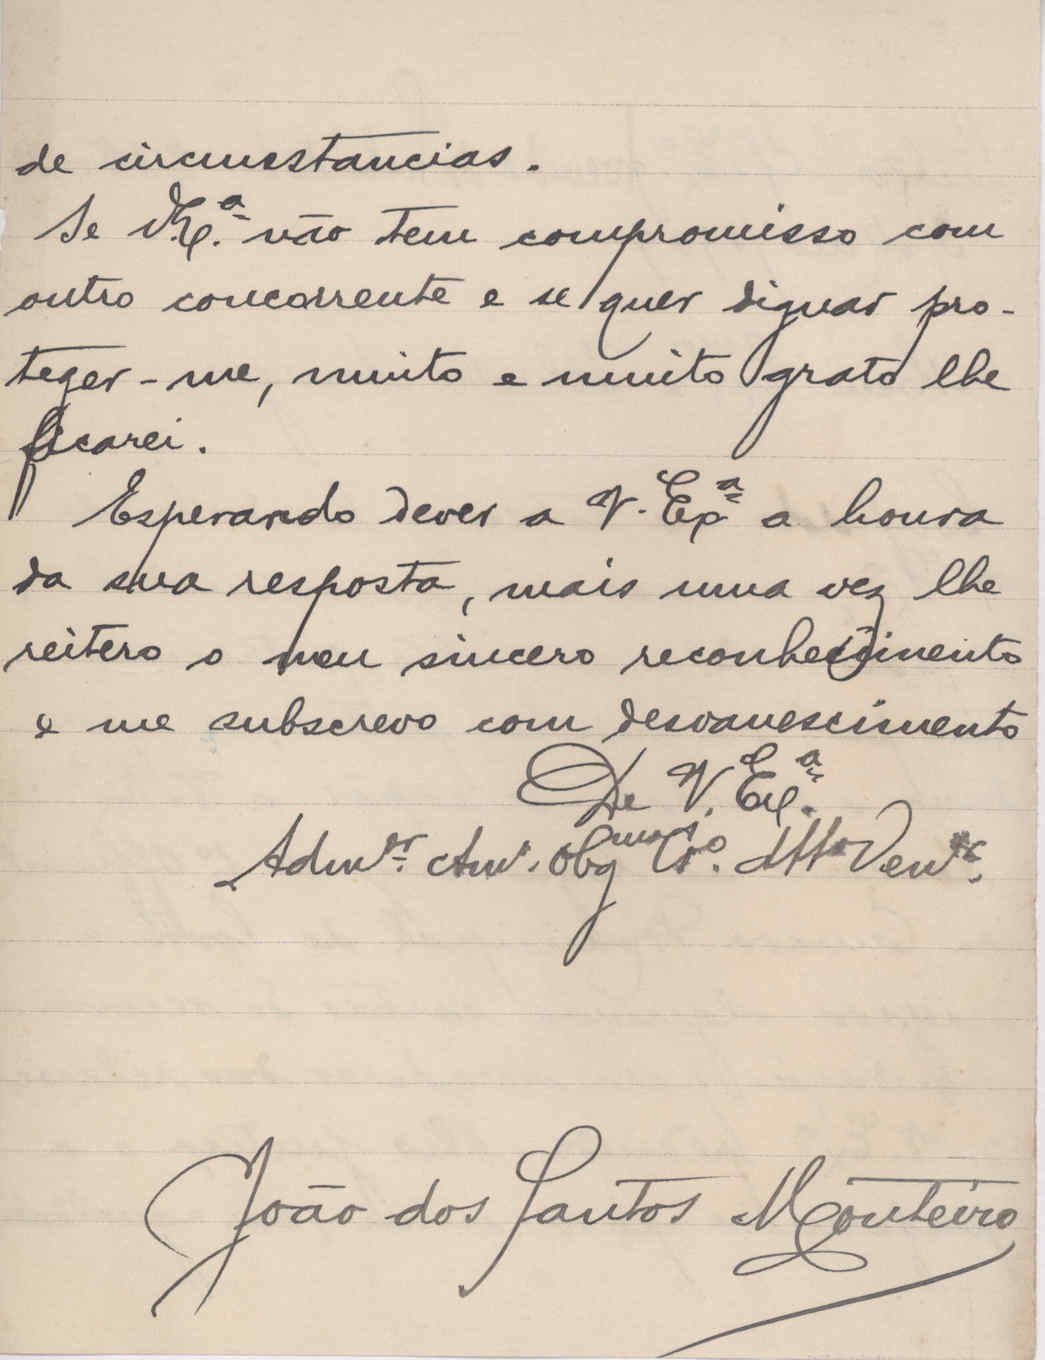 de circumstancias.
Se V. Ex.ª não tem compromisso com
outro concorrente e se quer dignar pro-
teger-me, muito e muito grato lhe
ficarei.
Esperando dever a V. Exª a honra
da sua resposta, mais uma vez lhe
reitero o meu sincero reconhecimento
e me subscrevo com desvanescimento
De V. Ex.ª
Adm.or Am.o Obgmo Cr.o Att.o Ven.or
João dos Santos Monteiro